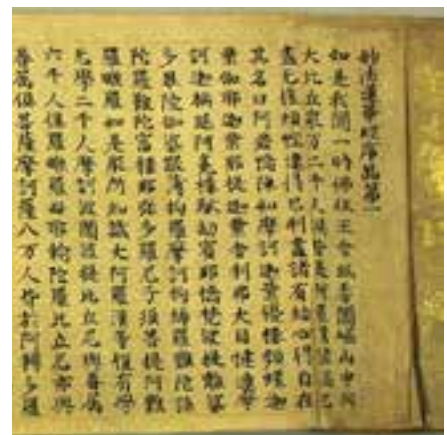 妙法蓮華經序品第一
如是我聞一時佛住王舍城耆闍崛山中與
大比丘衆万二千人俱皆是阿羅漢諸漏已
盡无復煩惱逮得己利盡諸有結心得自在
其名曰阿若憍陳如摩訶迦葉優樓頻螺迦
葉伽耶迦葉那提迦葉舍利弗大目揵連摩
訶迦旃延阿㝹樓馱劫賓那憍梵波提離婆
多畢陵伽婆蹉薄拘羅摩訶拘絺羅難陀孫
陀羅難陀富樓那弥多羅尼子須菩提阿難
羅睺羅如是衆所知識大阿羅漢等復有學
无學二千人摩訶波闍波提比丘尼與眷屬
六千人俱羅睺羅母耶輸陀羅比丘尼亦與
眷屬俱菩薩摩訶薩八万人皆於阿耨多羅